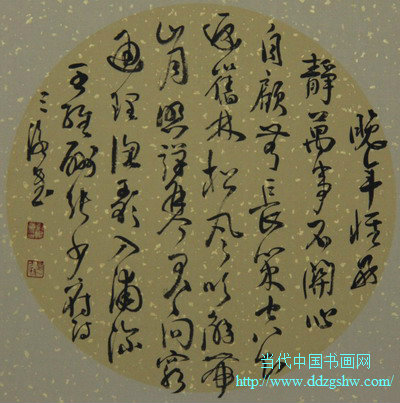 晚年惟好
靜萬事不關心
自顧無長策空知
返舊林松風吹解帶
山月照彈琴君問窮
通理漁歌入浦深
王維酬張少府詩
三 書
当代中国书画网
http://www.ddzgshw.com/